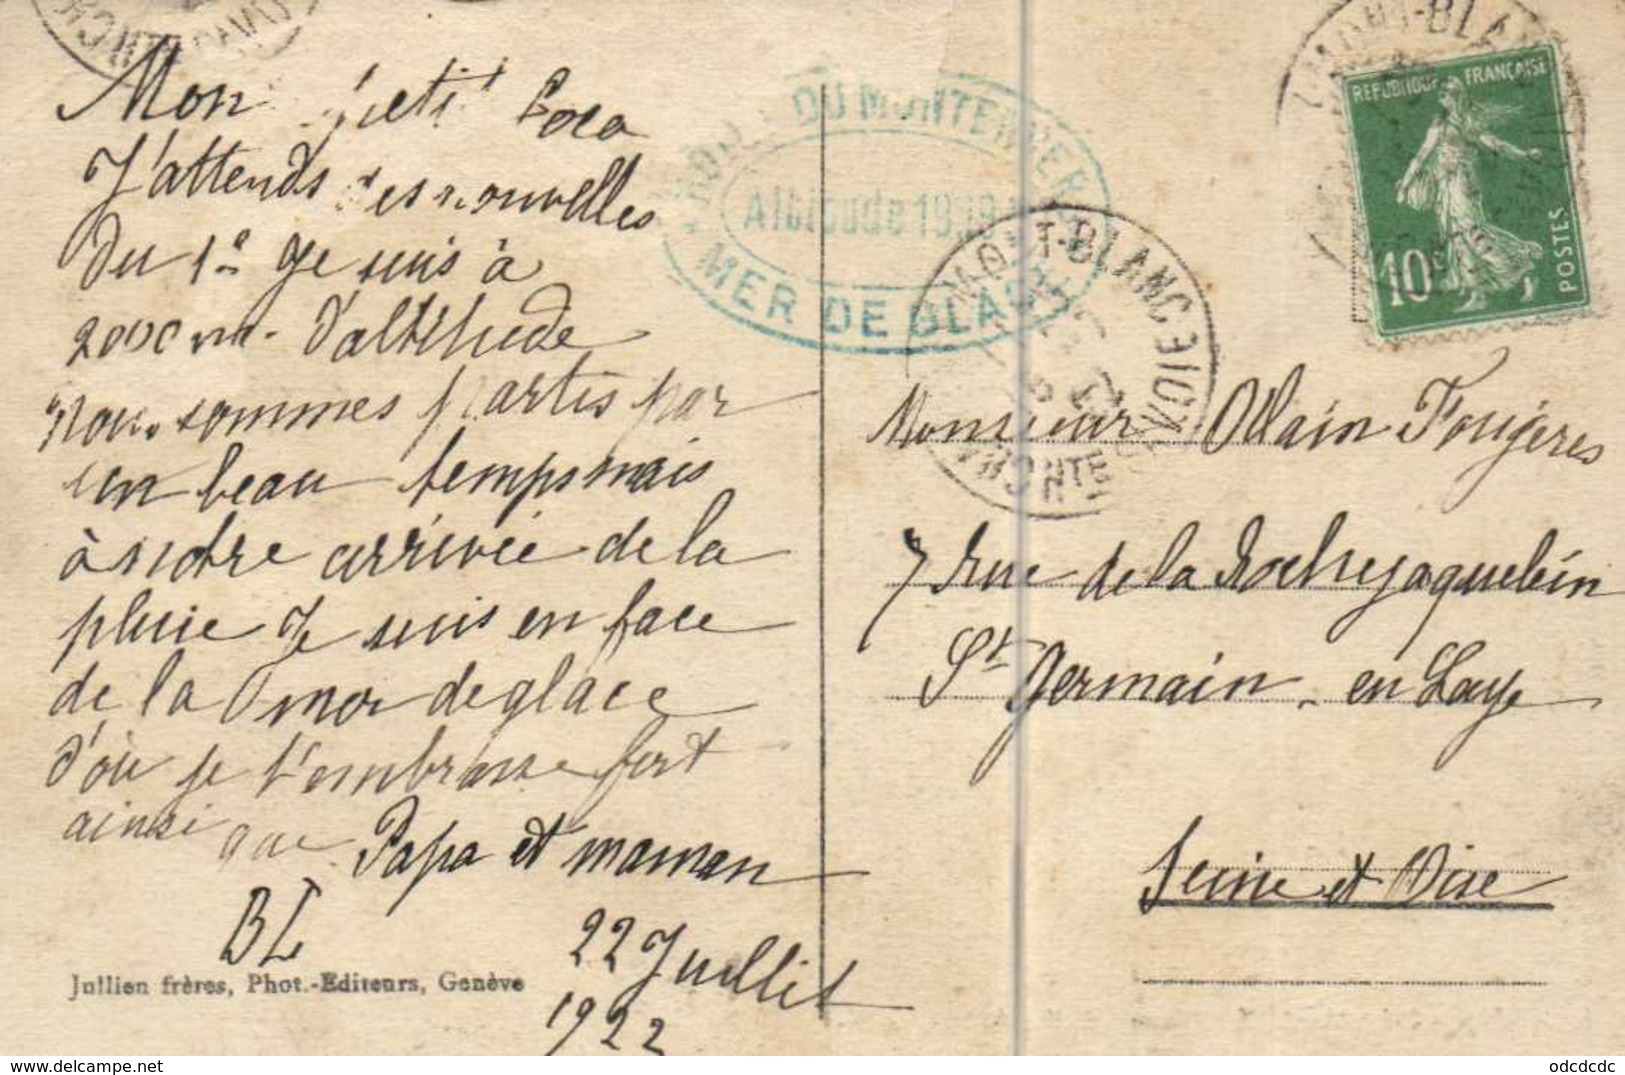 Mon petit Coco
J'attends des nouvelles
du 1er Je suis à
2000 m. d'altitude
nous sommes partis par
un beau temps mais
à notre arrivée de la
pluie Je suis en face
de la mer de glace
d'où je t'embrasse fort
ainsi que Papa et maman
BL
22 Juillet
1922
Jullien frères, Phot.-Editeurs, Genève
DU MONTENVERS
Altitude 19
MER DE GLACE
MONT-BLANC
MONT-BLANC
REPUBLIQUE FRANÇAISE
10c
POSTES
Monsieur Alain Fougères
7 rue de la Rochejaquelein
St Germain-en Laye
Seine et Oise
odcdcdc